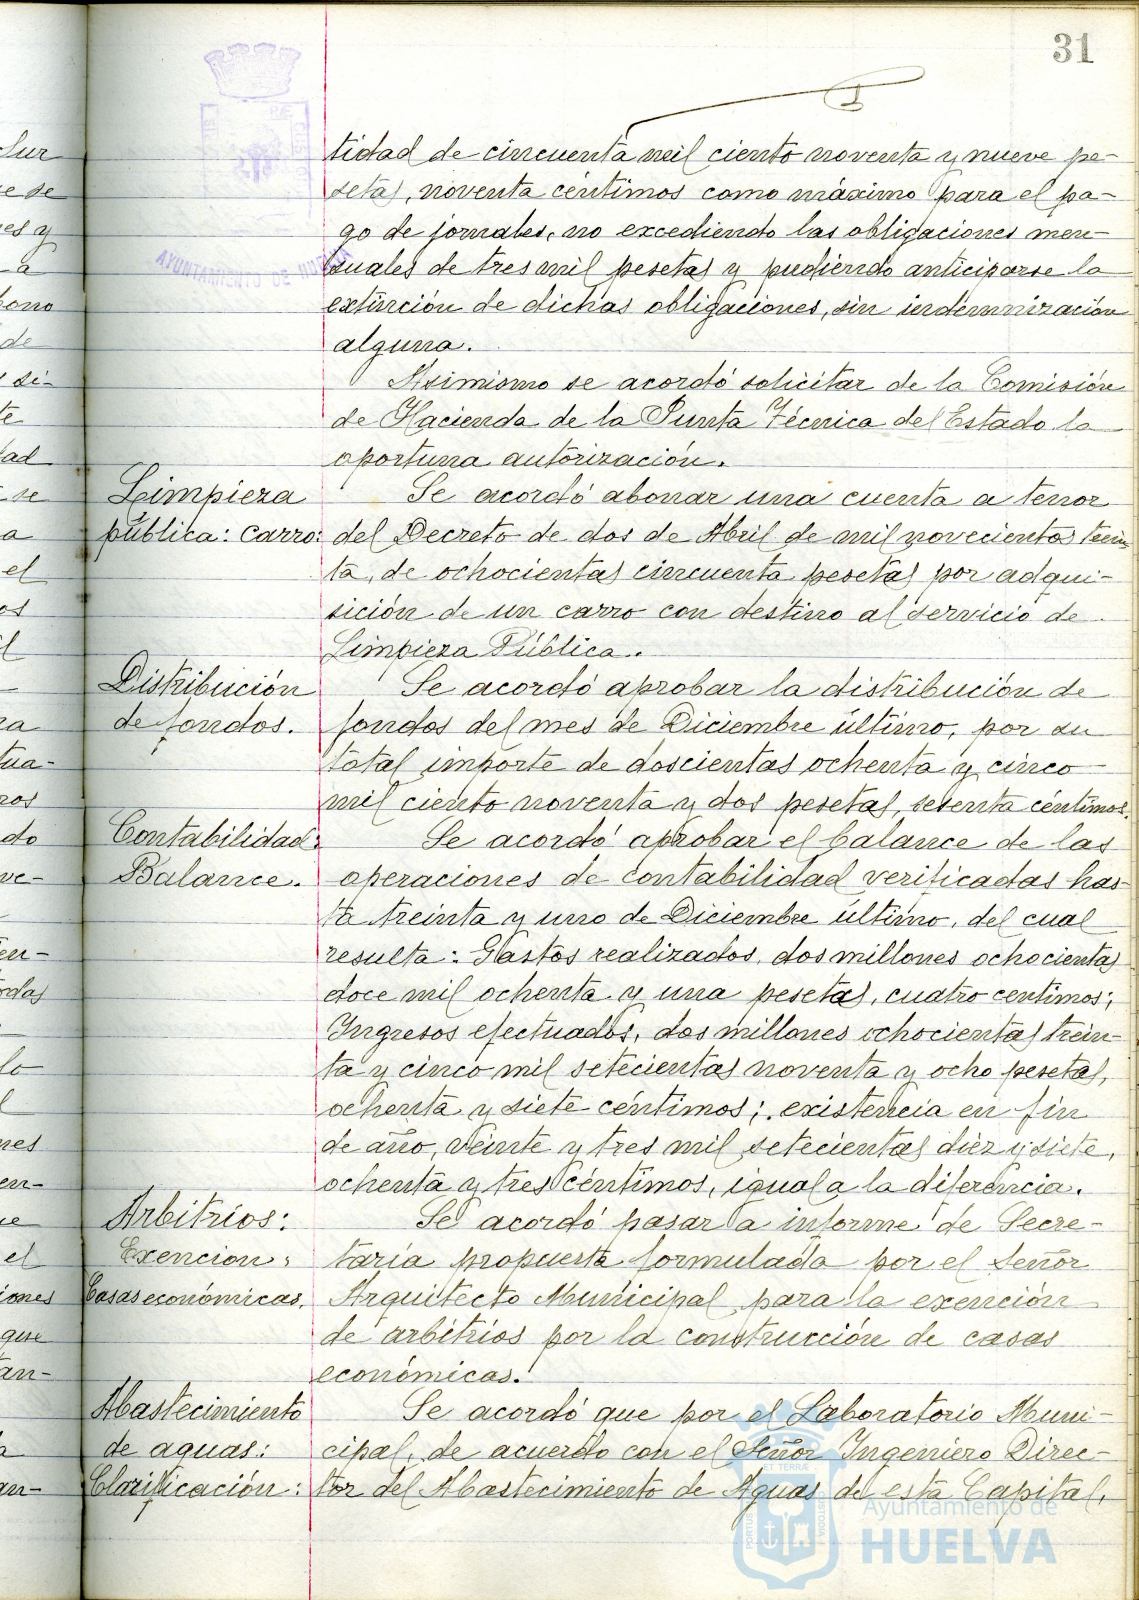 31
tidad de cincuenta mil ciento noventa y nueve pe-
setas, noventa céntimos como máximo para el pa-
go de jornales, no excediendo las obligaciones men-
suales de tres mil pesetas y pudiendo anticiparse la
extinción de dichas obligaciones, sin indemnización
alguna.
Asimismo se acordó solicitar de la Comisión
de Hacienda de la Junta Técnica del Estado la
oportuna autorización.
Limpieza
pública: carro:
Se acordó abonar una cuenta a tenor
del Decreto de dos de Abril de mil novecientos trein-
ta, de ochocientas cincuenta pesetas por adqui-
sición de un carro con destino al servicio de
Limpieza Pública.
Distribución
de fondos.
Se acordó aprobar la distribución de
fondos del mes de Diciembre último, por su
total importe de doscientas ochenta y cinco
mil ciento noventa y dos pesetas, sesenta céntimos.
Contabilidad:
Balance.
Se acordó aprobar el balance de las
operaciones de contabilidad verificadas has-
ta treinta y uno de Diciembre último, del cual
resulta: Gastos realizados, dos millones ochocientas
doce mil ochenta y una pesetas, cuatro centimos;
Ingresos efectuados, dos millones ochocientas trein-
ta y cinco mil setecientas noventa y ocho pesetas,
ochenta y siete céntimos; existencia en fin
de año, veinte y tres mil setecientas diez y siete,
ochenta y tres céntimos, igual a la diferencia.
Arbitrios:
Exencion:
Casas económicas.
Se acordó pasar a informe de Secre-
taría propuesta formulada por el Señor
Arquitecto Municipal para la exención
de arbitrios por la construcción de casas
económicas.
Abastecimiento
de aguas:
Clarificación:
Se acordó que por el Laboratorio Muni-
cipal, de acuerdo con el Señor Ingeniero Direc-
tor del Abastecimiento de Aguas de esta Capital,
AYUNTAMIENTO DE HUELVA
Ayuntamiento de
HUELVA